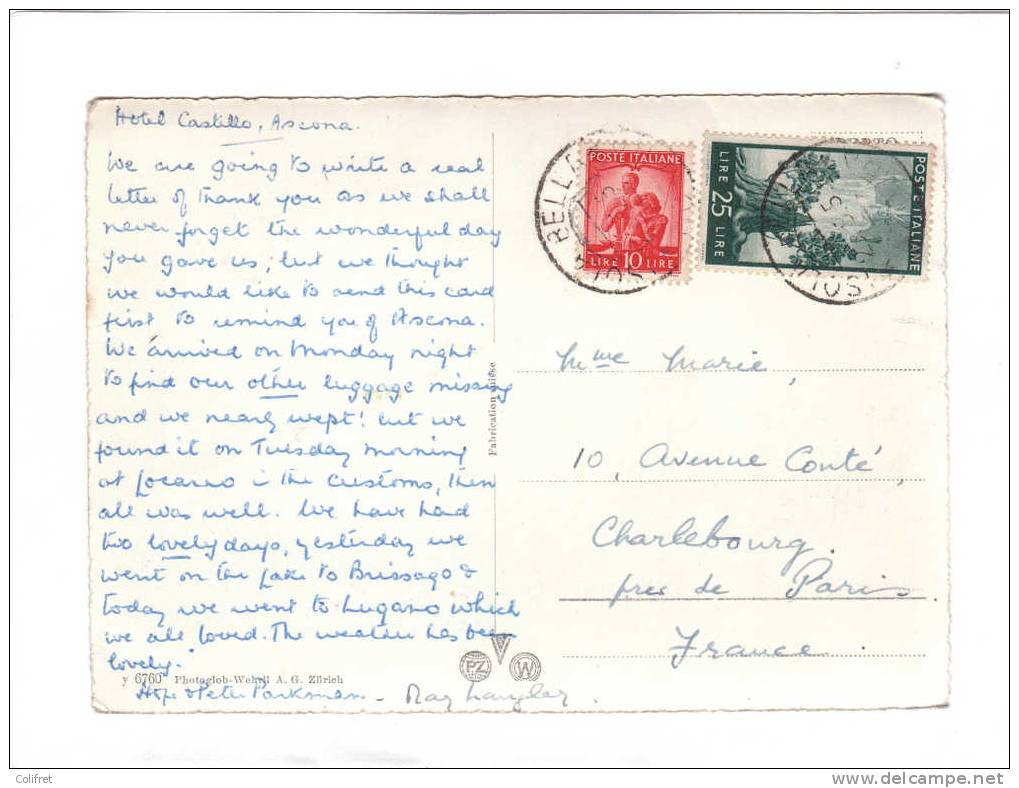 Hotel Castillo, Ascona.
We are going to write a real
letter of thank you as we shall
never forget the wonderful day
you gave us; but we thought
we would like to send this card
first to remind you of Ascona.
We arrived on Monday night
to find our other luggage missing
and we nearly wept! but we
found it on Tuesday morning
at Locarno in the Customs, then
all was well. We have had
two lovely days, yesterday we
went on the lake to Brissago &
today we went to Lugano which
we all loved. The weather has been
lovely.
y 6760 Photoglob-Wehrli A. G. Zürich
Hope & Peter Parkman - May Langley.
Fabrication suisse
PZ W
POSTE ITALIANE
LIRE 10 LIRE
POSTE ITALIANE
LIRE 25 LIRE
Mme Marie,
10, Avenue Conté,
Charlebourg.
près de Paris.
France.
Colifret
www.delcampe.net